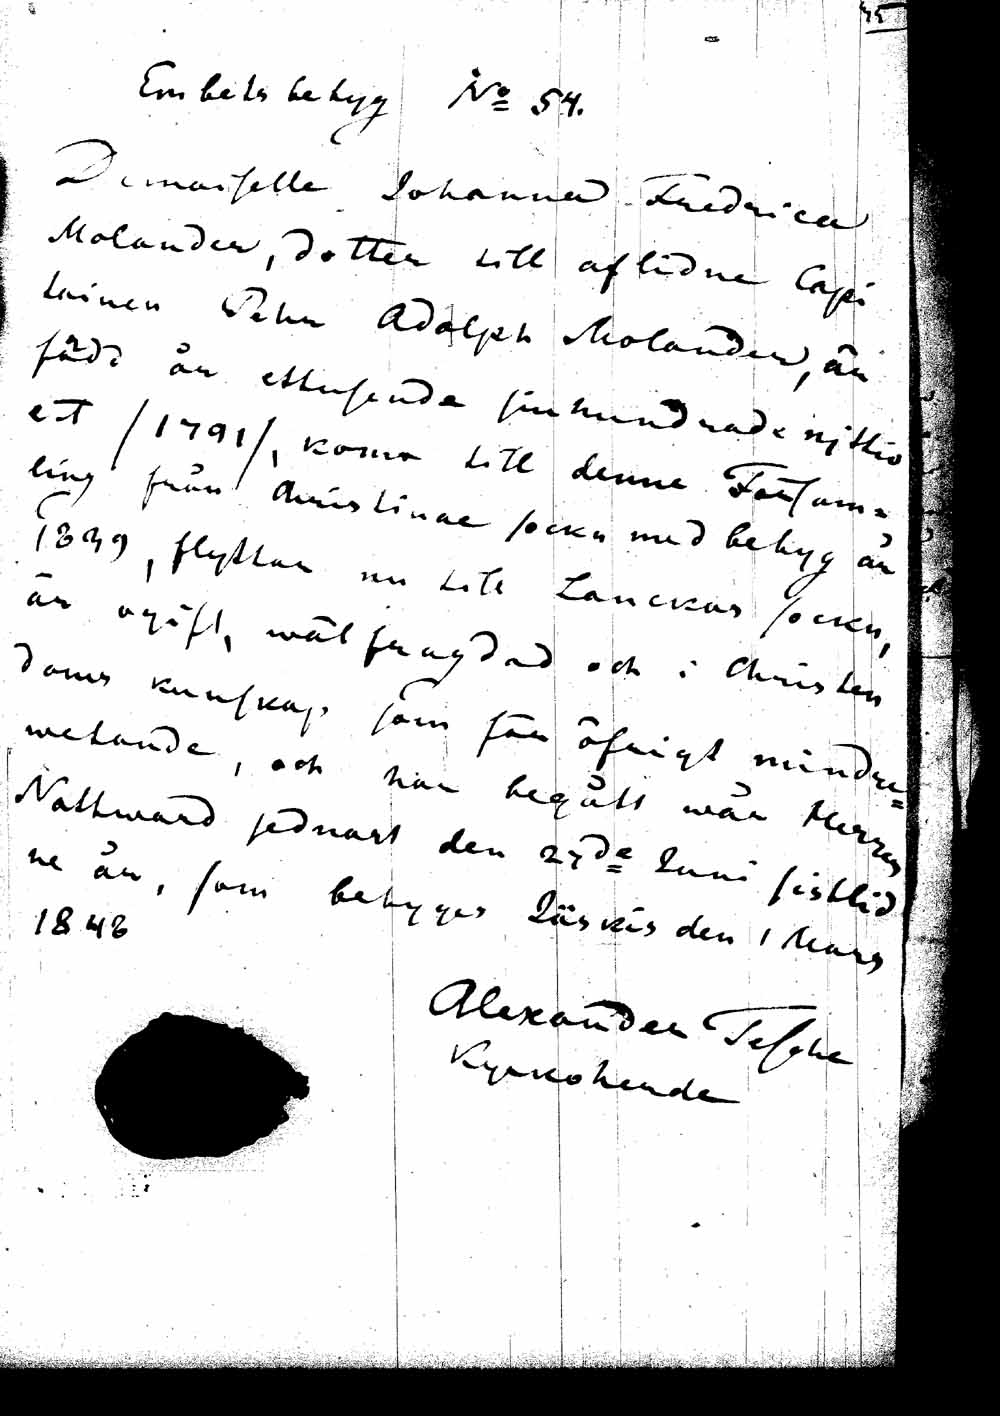 35
Embets betyg No 54.
Demoiselle Johanna Fredrica
Molander, dotter till aflidne Capi
tainen Pehr Adolph Molander, är
född år ettusende sjuhundrade nijttio
ett /1791/, kom till denne Försam=
ling från Christinae socken med betyg år
1839, flyttar nu till Lanckas socken,
är ogift, wäl frägdad och i Christen
doms kunskap som för öfrigt mindre=
wetande, och har begått wår Herres
Nattward sednast den 27de Juni sistlid
ne år, som betyges Jäskis den 1 Mars
1843
Alexander Tesche
Kyrkoherde